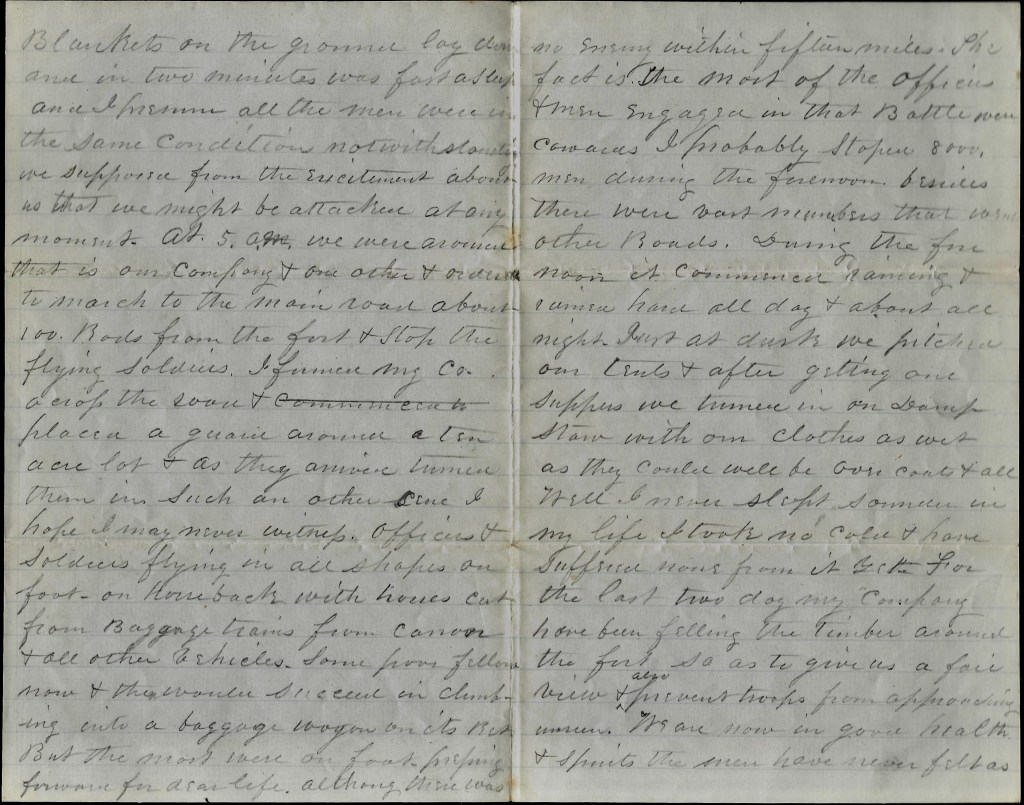 Blankets on the ground lay down
and in two minutes was fast asleep
and I presum all the men were in
the same condition notwithstanding
we supposed from the excitement about
us that we might be attacked at any
moment. At. 5. am, we were aroused
that is our Company & one other & ordered
to march to the main road about
100. Rods from the fort & Stop the
flying Soldiers. I formed my Co.
across the road & commenced to
placed a guard around a ten
acre lot & as they arrived turned
them in. Such an other Scene I
hope I may never witness. Officers &
Soldiers flying in all shapes on
foot - on Horseback with horses cut
from Baggage trains from cannon
& all other Vehicles. Some poor fellow
now & then would succeed in climb-
ing into a baggage wagon on its
But the most were on foot
forward for dear life. althoug there was
no Enemy within fifteen miles. The
fact is. The most of the officers
& men Engaged in that Battle were
Cowards I probably Stoped 8000.
men during the forenoon. besides
there were vast numbers that went
other Roads. During the fore
noon it commenced raining &
rained hard all day & about all
night. Just at dusk we pitched
our tents & after getting our
Suppers we turned in on Damp
Straw with our clothes as wet
as they could well be over coats & all
Well I never slept sounder in
my life I took no cold & have
Suffered none from it yet. For
the last two day my Company
have been felling the timber around
the fort so as to give us a fair
view & also prevent troops from approaching
unseen. We are now in good health
& Spirits the men have never felt as